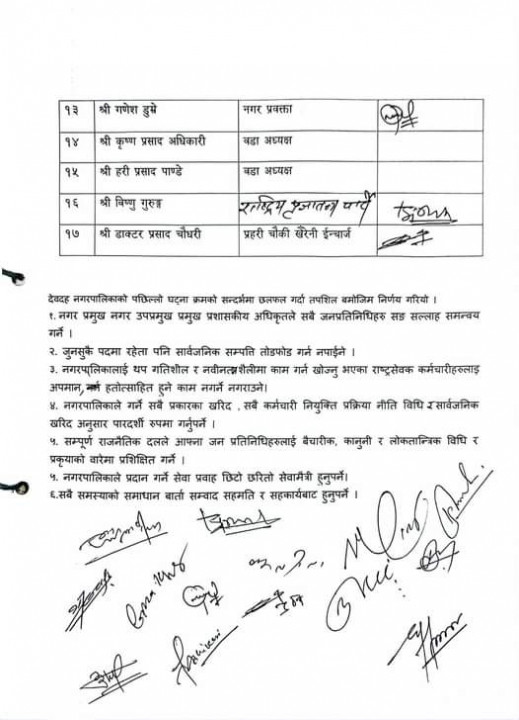 १३ श्री गणेश डुम्रे नगर प्रवक्ता
१४ श्री कृष्ण प्रसाद अधिकारी वडा अध्यक्ष
१५ श्री हरी प्रसाद पाण्डे वडा अध्यक्ष
१६ श्री विष्णु गुरुङ्ग राष्ट्रिय प्रजातन्त्र पार्टी
१७ श्री डाक्टर प्रसाद चौधरी प्रहरी चौकी खैरेनी ईन्चार्ज
देवदह नगरपालिकाको पछिल्लो घट्ना क्रमको सन्दर्भमा छलफल गर्दा तपशिल बमोजिम निर्णय गरियो ।
१. नगर प्रमुख नगर उपप्रमुख प्रमुख प्रशासकीय अधिकृतले सबै जनप्रतिनिधिहरु सङ सल्लाह समन्वय
गर्ने ।
२. जुनसुकै पदमा रहेता पनि सार्वजनिक सम्पत्ति तोडफोड गर्न नपाईने ।
३. नगरपालिकालाई थप गतिशील र नवीनतम शैलीमा काम गर्न खोज्नु भएका राष्ट्रसेवक कर्मचारीहरुलाइ
अपमान, हतोत्साहित हुने काम नगर्ने नगराउने।
४. नगरपालिकाले गर्ने सबै प्रकारका खरिद , सबै कर्मचारी नियुक्ति प्रक्रिया नीति विधि र सार्वजनिक
खरिद अनुसार पारदर्शी रुपमा गर्नुपर्ने ।
५. सम्पूर्ण राजनैतिक दलले आफ्ना जन प्रतिनिधिहरुलाई बैचारीक, कानुनी र लोकतान्त्रिक विधि र
प्रकृयाको वारेमा प्रशिक्षित गर्ने ।
५. नगरपालिकाले प्रदान गर्ने सेवा प्रवाह छिटो छरितो सेवामैत्री हुनुपर्ने।
६.सबै समस्याको समाधान बार्ता सम्वाद सहमति र सहकार्यबाट हुनुपर्ने ।